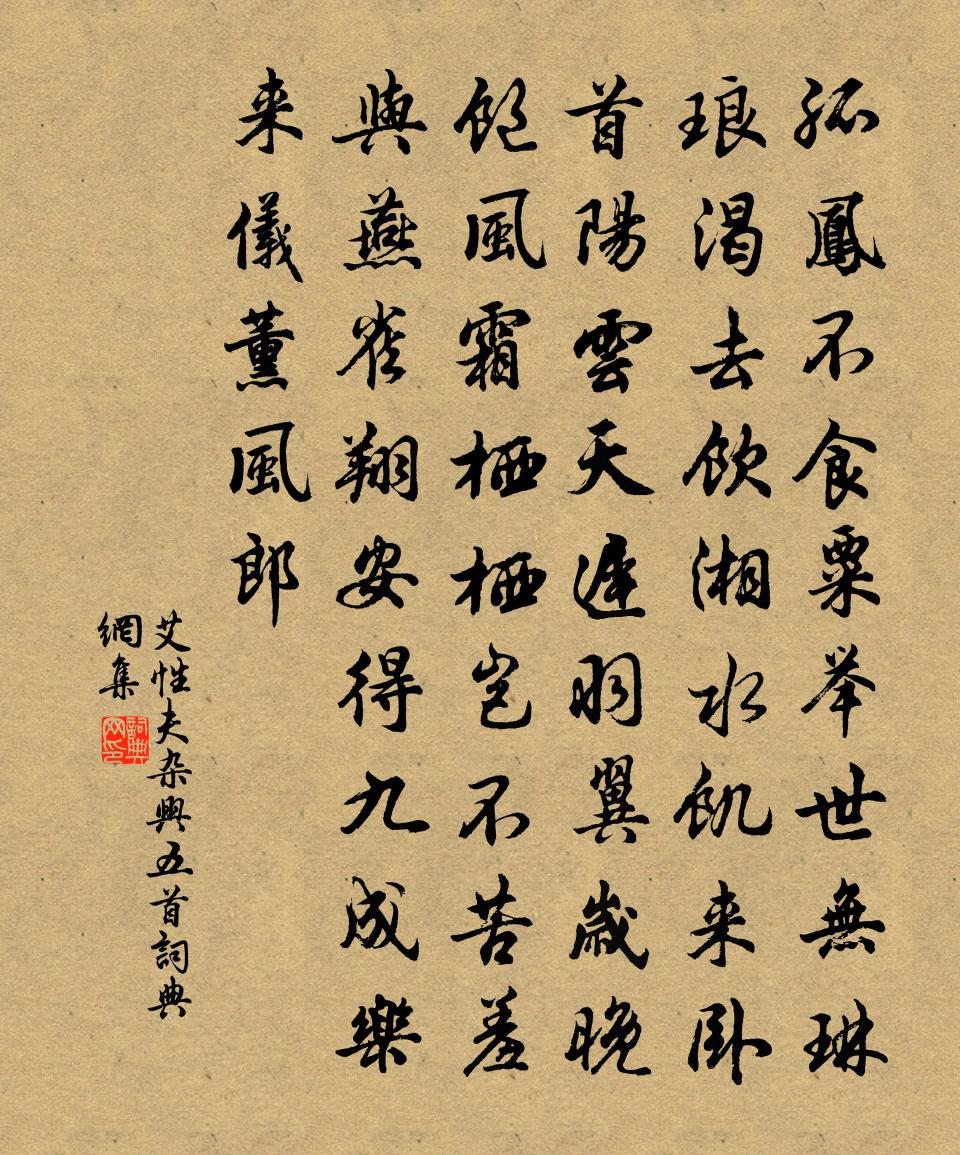 孤鳳不食粟举世無琳
琅渴去飲湘水飢来卧
首陽雲天遲羽翼歲晚
飽風霜栖栖岂不苦羞
與燕雀翔安得九成樂
来儀薰風郎
艾性夫杂興五首詞典
網集
詞典
网印